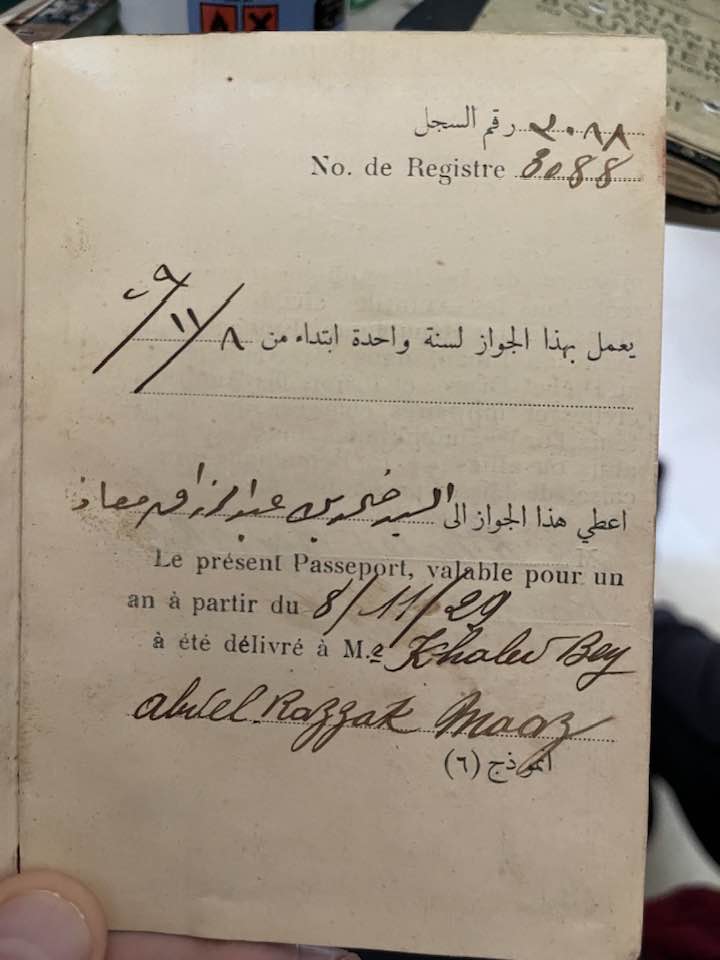 رقم السجل ٣٠٨٨
No. de Registre 3088
يعمل بهذا الجواز لسنة واحدة ابتداء من ٨/١١/٢٩
اعطي هذا الجواز الى السيد خالد بن عبد الرزاق معاذ
Le présent Passeport, valable pour un
an à partir du 8/11/29
à été délivré à M.e Khaled Bey
abdel Razzak Maaz
انموذج (٦)